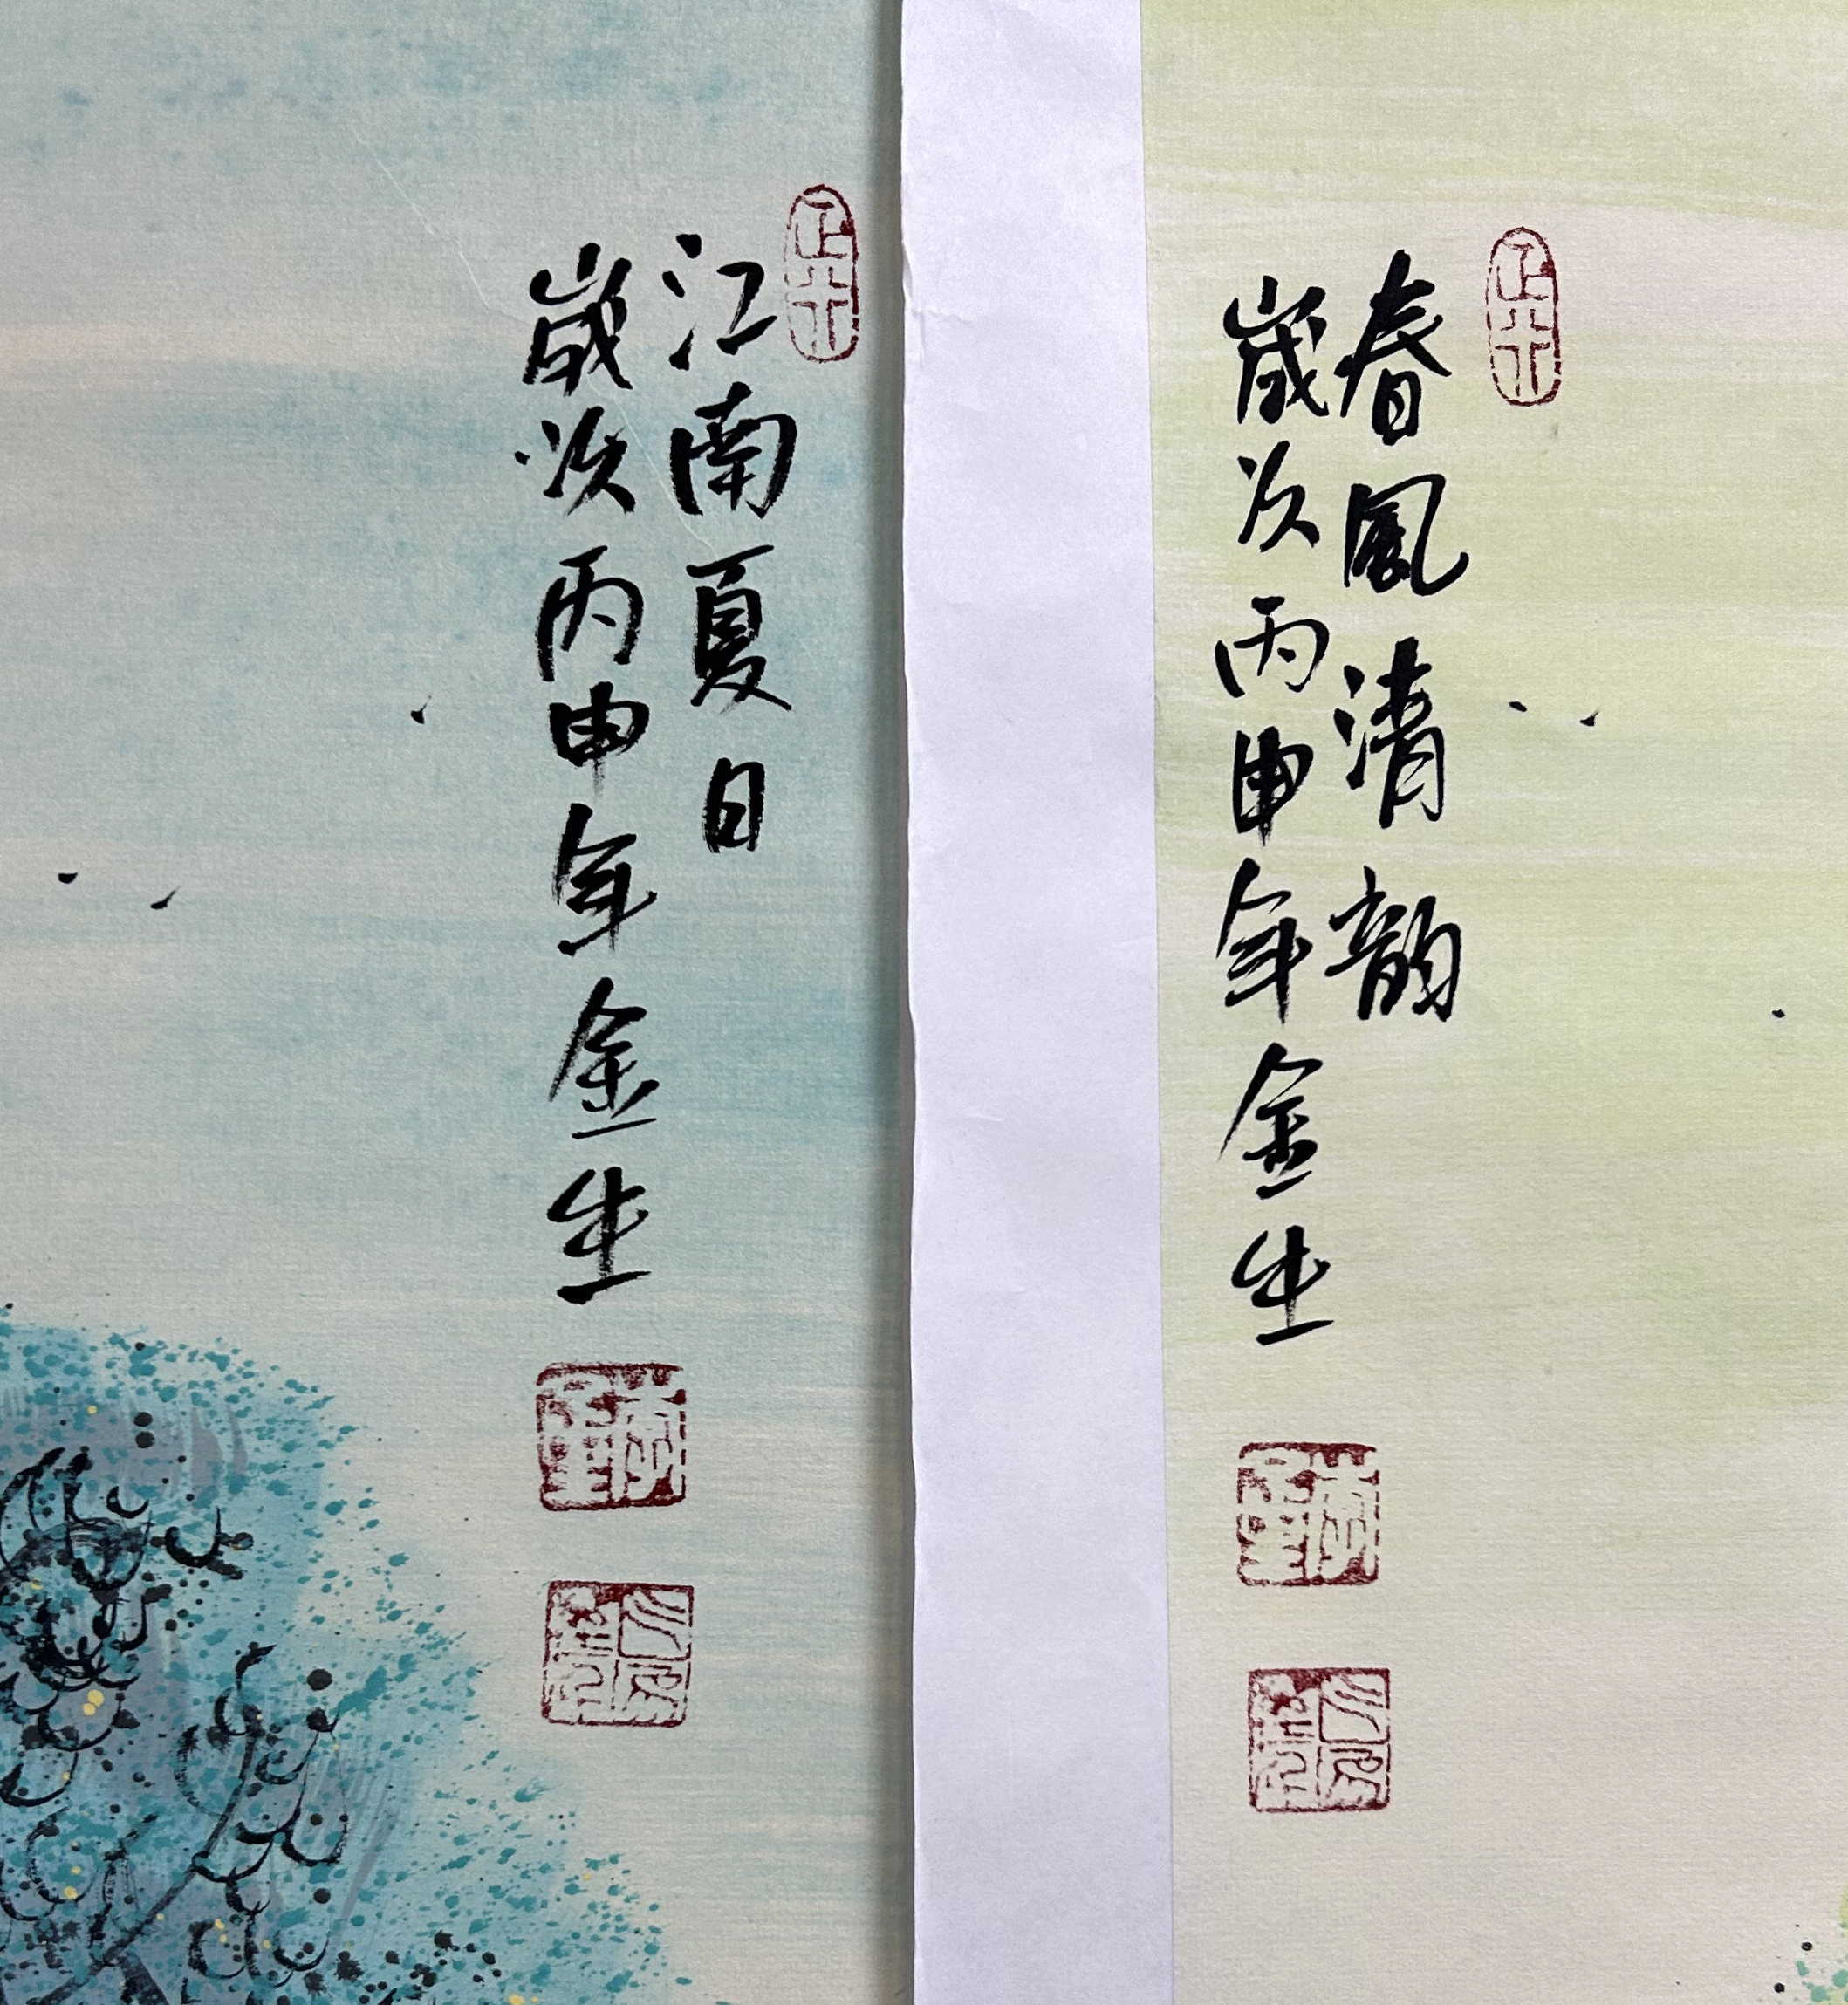 春風清韵
歲次丙申年金生
江南夏日
歲次丙申年金生